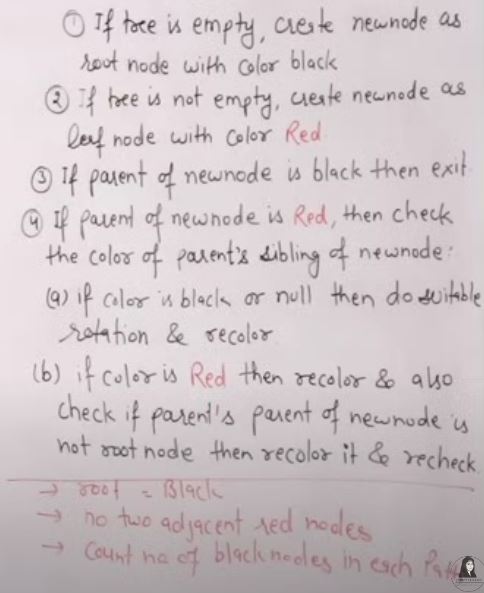 ① If tree is empty, create newnode as
root node with color black
② If tree is not empty, create newnode as
leaf node with color Red
③ If parent of newnode is black then exit
④ If parent of newnode is Red, then check
the color of parent's sibling of newnode:
(a) if color is black or null then do suitable
rotation & recolor
(b) if color is Red then recolor & also
check if parent's parent of newnode is
not root node then recolor it & recheck
→ root = Black
→ no two adjacent red nodes
→ count no of black nodes in each Path